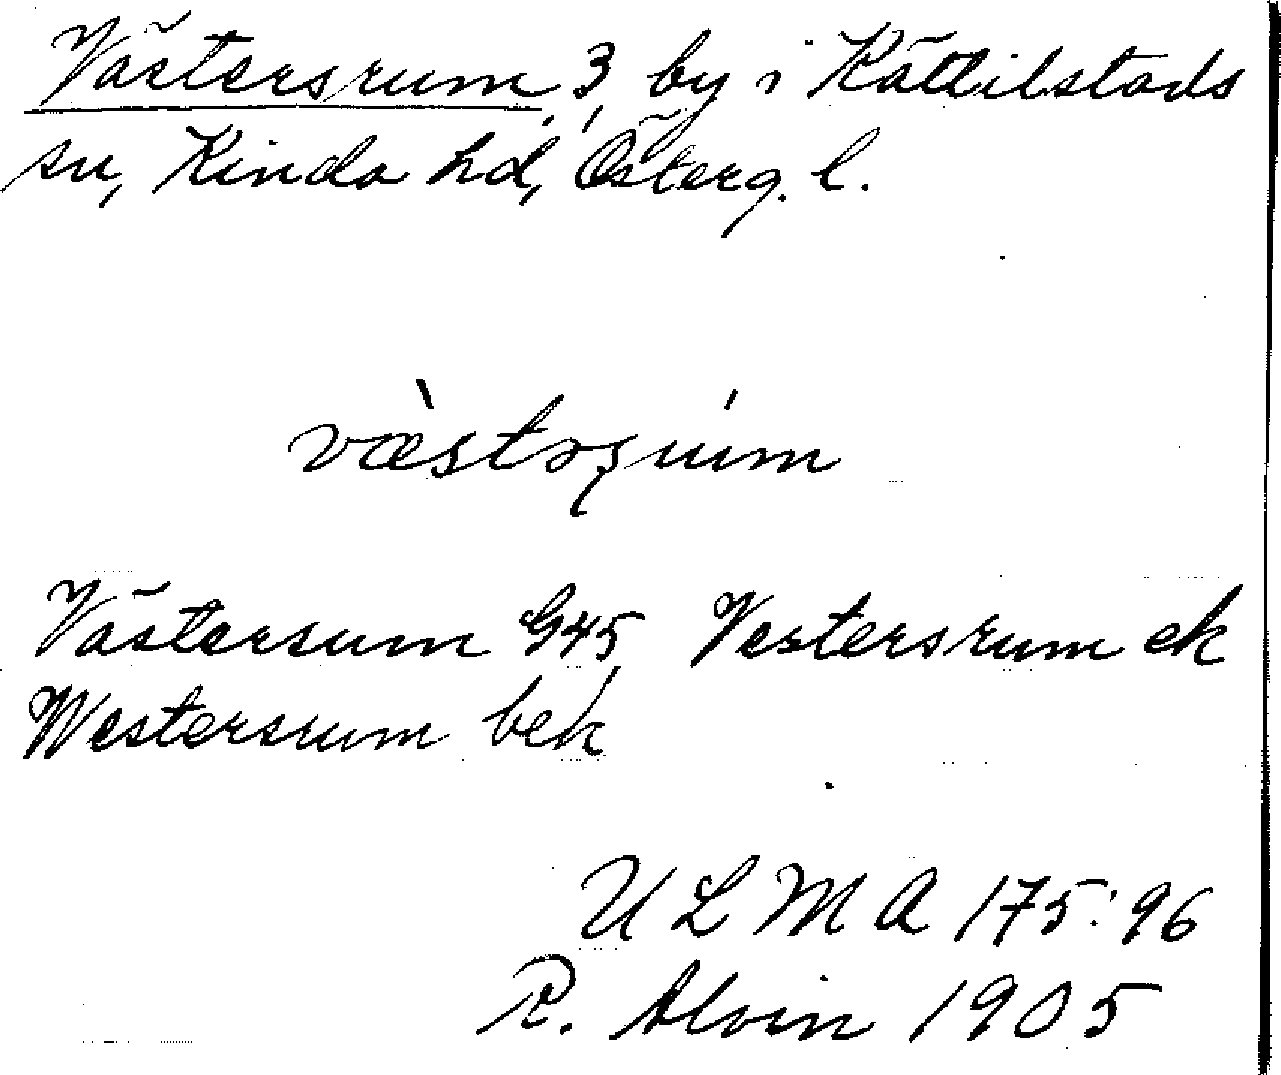 Västersrum, 3, by i Kättilstads
sn, Kinda hd, Österg. l.
Västersum G45, Vestersrum ek
Westersrum bek
ULMA 175:96
R. Alvin 1905